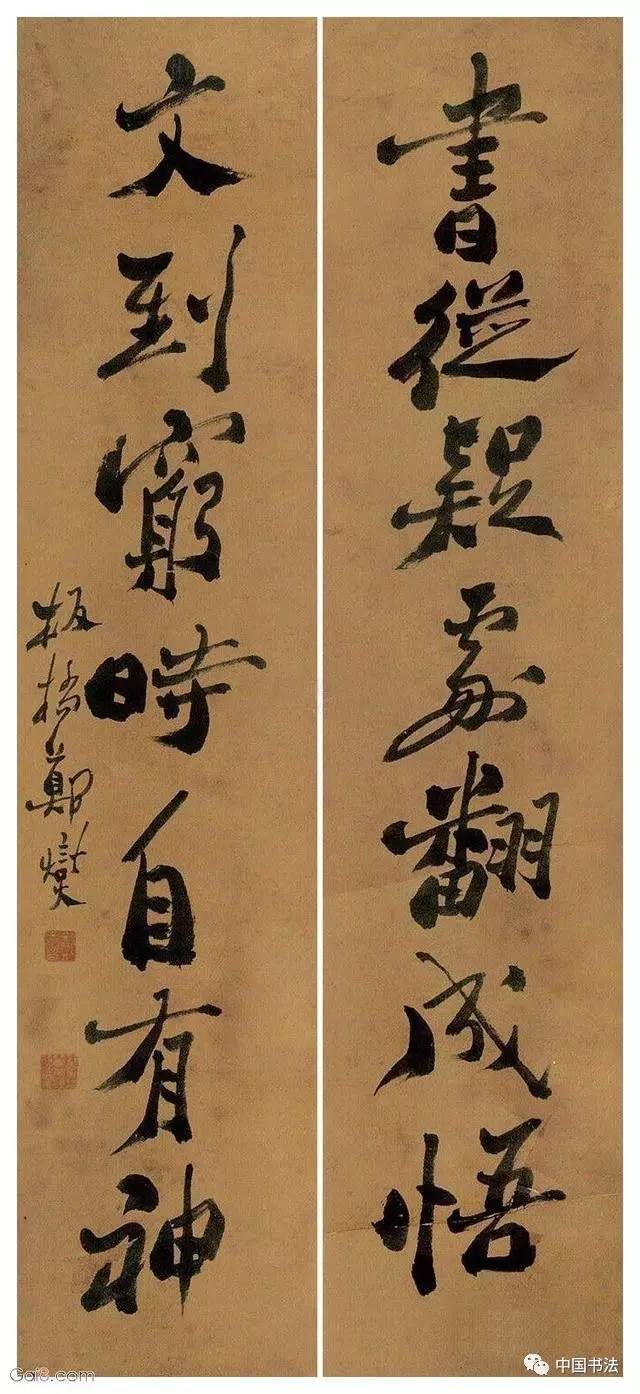 書從疑處翻成悟
文到窮時自有神
板橋鄭燮
中国书法
Gai8.com